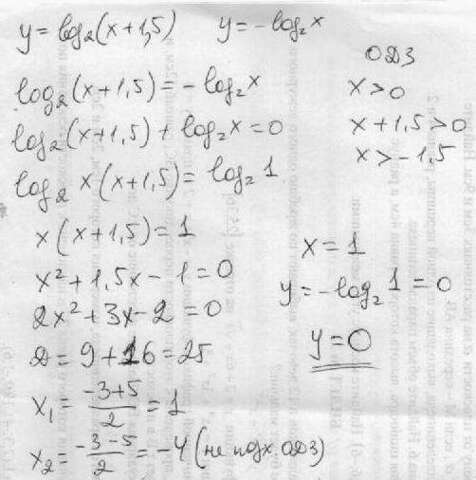 y = log₂(x+1,5)   y = -log₂x
log₂(x+1,5) = -log₂x
log₂(x+1,5) + log₂x = 0
log₂ x(x+1,5) = log₂1
x(x+1,5) = 1
x² + 1,5x - 1 = 0
2x² + 3x - 2 = 0
D = 9 + 16 = 25
x₁ = (-3+5)/2 = 1
x₂ = (-3-5)/2 = -4 (не подх. ОДЗ)
ОДЗ
x > 0
x + 1,5 > 0
x > -1,5
x = 1
y = -log₂1 = 0
y = 0